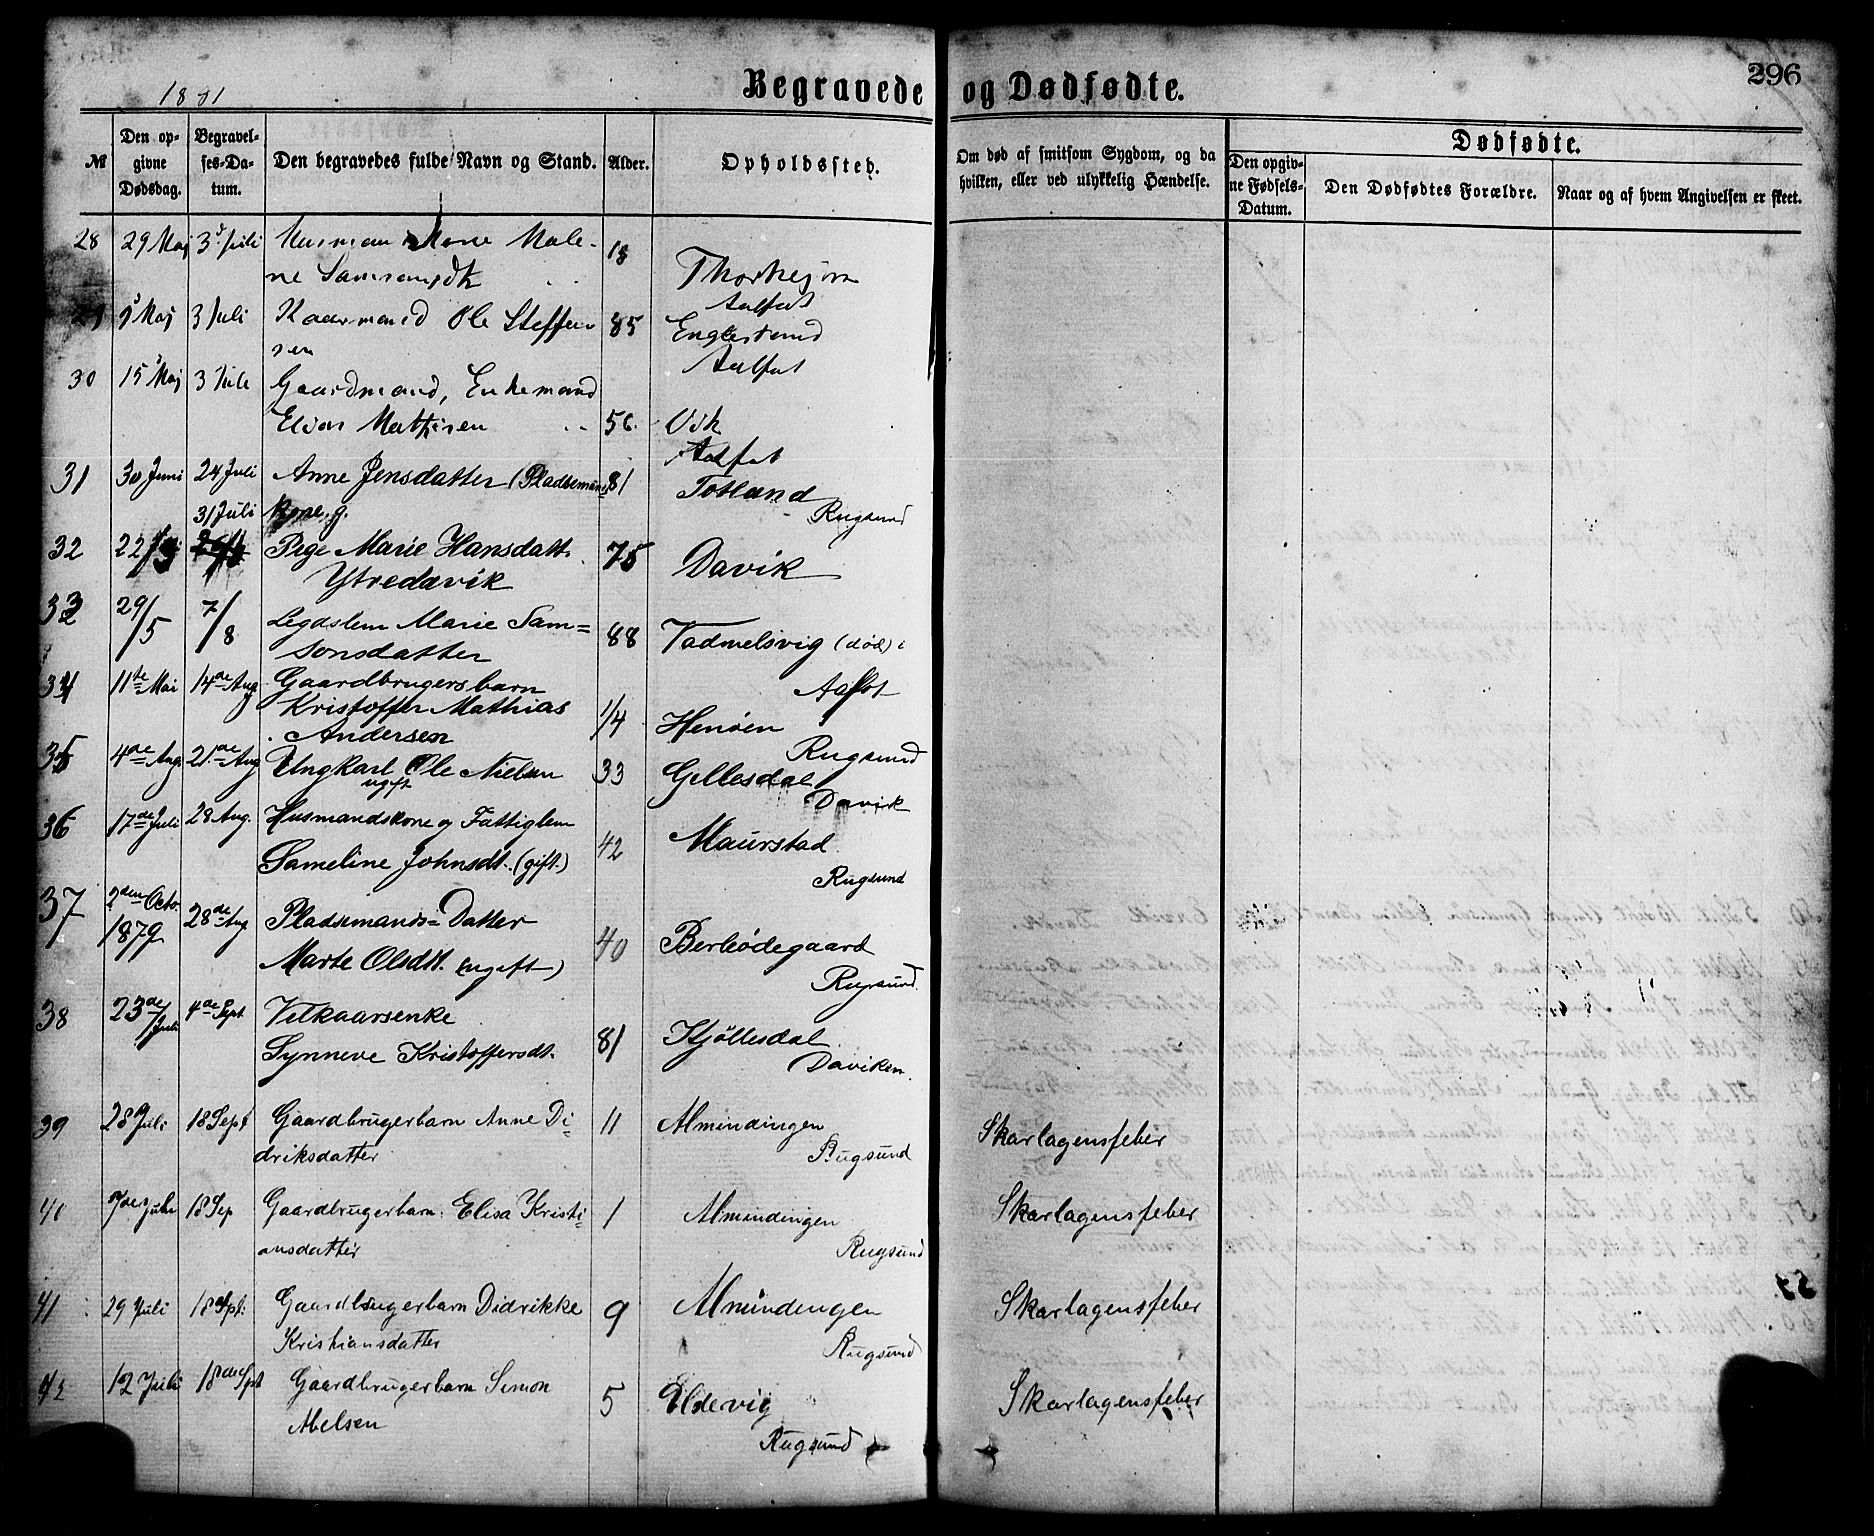 1881
Begravede og Dødfødte.
296
№
Den opgivne Dødsdag.
Begravelses-Datum.
Den begravedes fulde Navn og Stand.
Alder.
Opholdssted.
Om død af smitsom Sygdom, og da hvilken, eller ved ulykkelig Hændelse.
Dødfødte.
Den opgivne Fødsels-Datum.
Den Dødfødtes Forældre.
Naar og af hvem Angivelsen er skeet.
28 29 Maj 3 Juli Male-
ne Samsonsdtr 18
Aalfot
29 9 Maj 3 Juli Kaarmand Ole Steffen-
sen 85
Aalfot
30 15 Maj 3 Juli Gaardmand, Enkemand
Elias Mathisen 56. Vik
Aalfot
31 30 Juni 24 Juli Anne Jensdatter (Pladsemands 81 Totland
kone. g. Rugsund
31 Juli
32 22/5 Pige Marie Hansdatt. 75 Davik
Ytredavik
33 29/5 7/8 Legdslem Marie Sam=
sonsdatter 88 Vadmelsvig (død) i
Aalfot
34 11te Mai 14de Aug Gaardbrugersbarn
Kristoffer Mathias 1/4 Henøen
Andersen Rugsund
35 4de Aug 21de Aug Ungkarl Ole Nielsen 33 Gellesdal
ugift Davik
36 17de Juli 28 Aug. Husmandskone og Fattiglem
Sameline Johnsdt. (gift.) 42 Maurstad
Rugsund
37 2den Octo. 1879 28de Aug Pladsemands=Datter
Marte Olsdtt. (ugift) 40 Berleødegaard
Rugsund.
38 23de Juli 4de Sept Velkaarsenke
Synneve Kristoffersdt. 81 Kjøllesdal
Daviken.
39 28 Juli 18 Sept Gaardbrugerbarn Anne Di=
driksdatter 11 Almindingen
Rugsund
Skarlagensfeber
40 7de Juli 18 Sep Gaardbrugerbarn: Elisa Kristi=
ansdatter 1 Almindingen
Rugsund
Skarlagensfeber
41 29 Juli 18 Spt. Gaardbrugerbarn Didrikke
Kristiansdatter 9 Almindingen
Rugsund
Skarlagensfeber
42 12 Juli 18de Spt Gaardbrugerbarn Simon
Abelsen 5 Eldevig
Rugsund
Skarlagensfeber